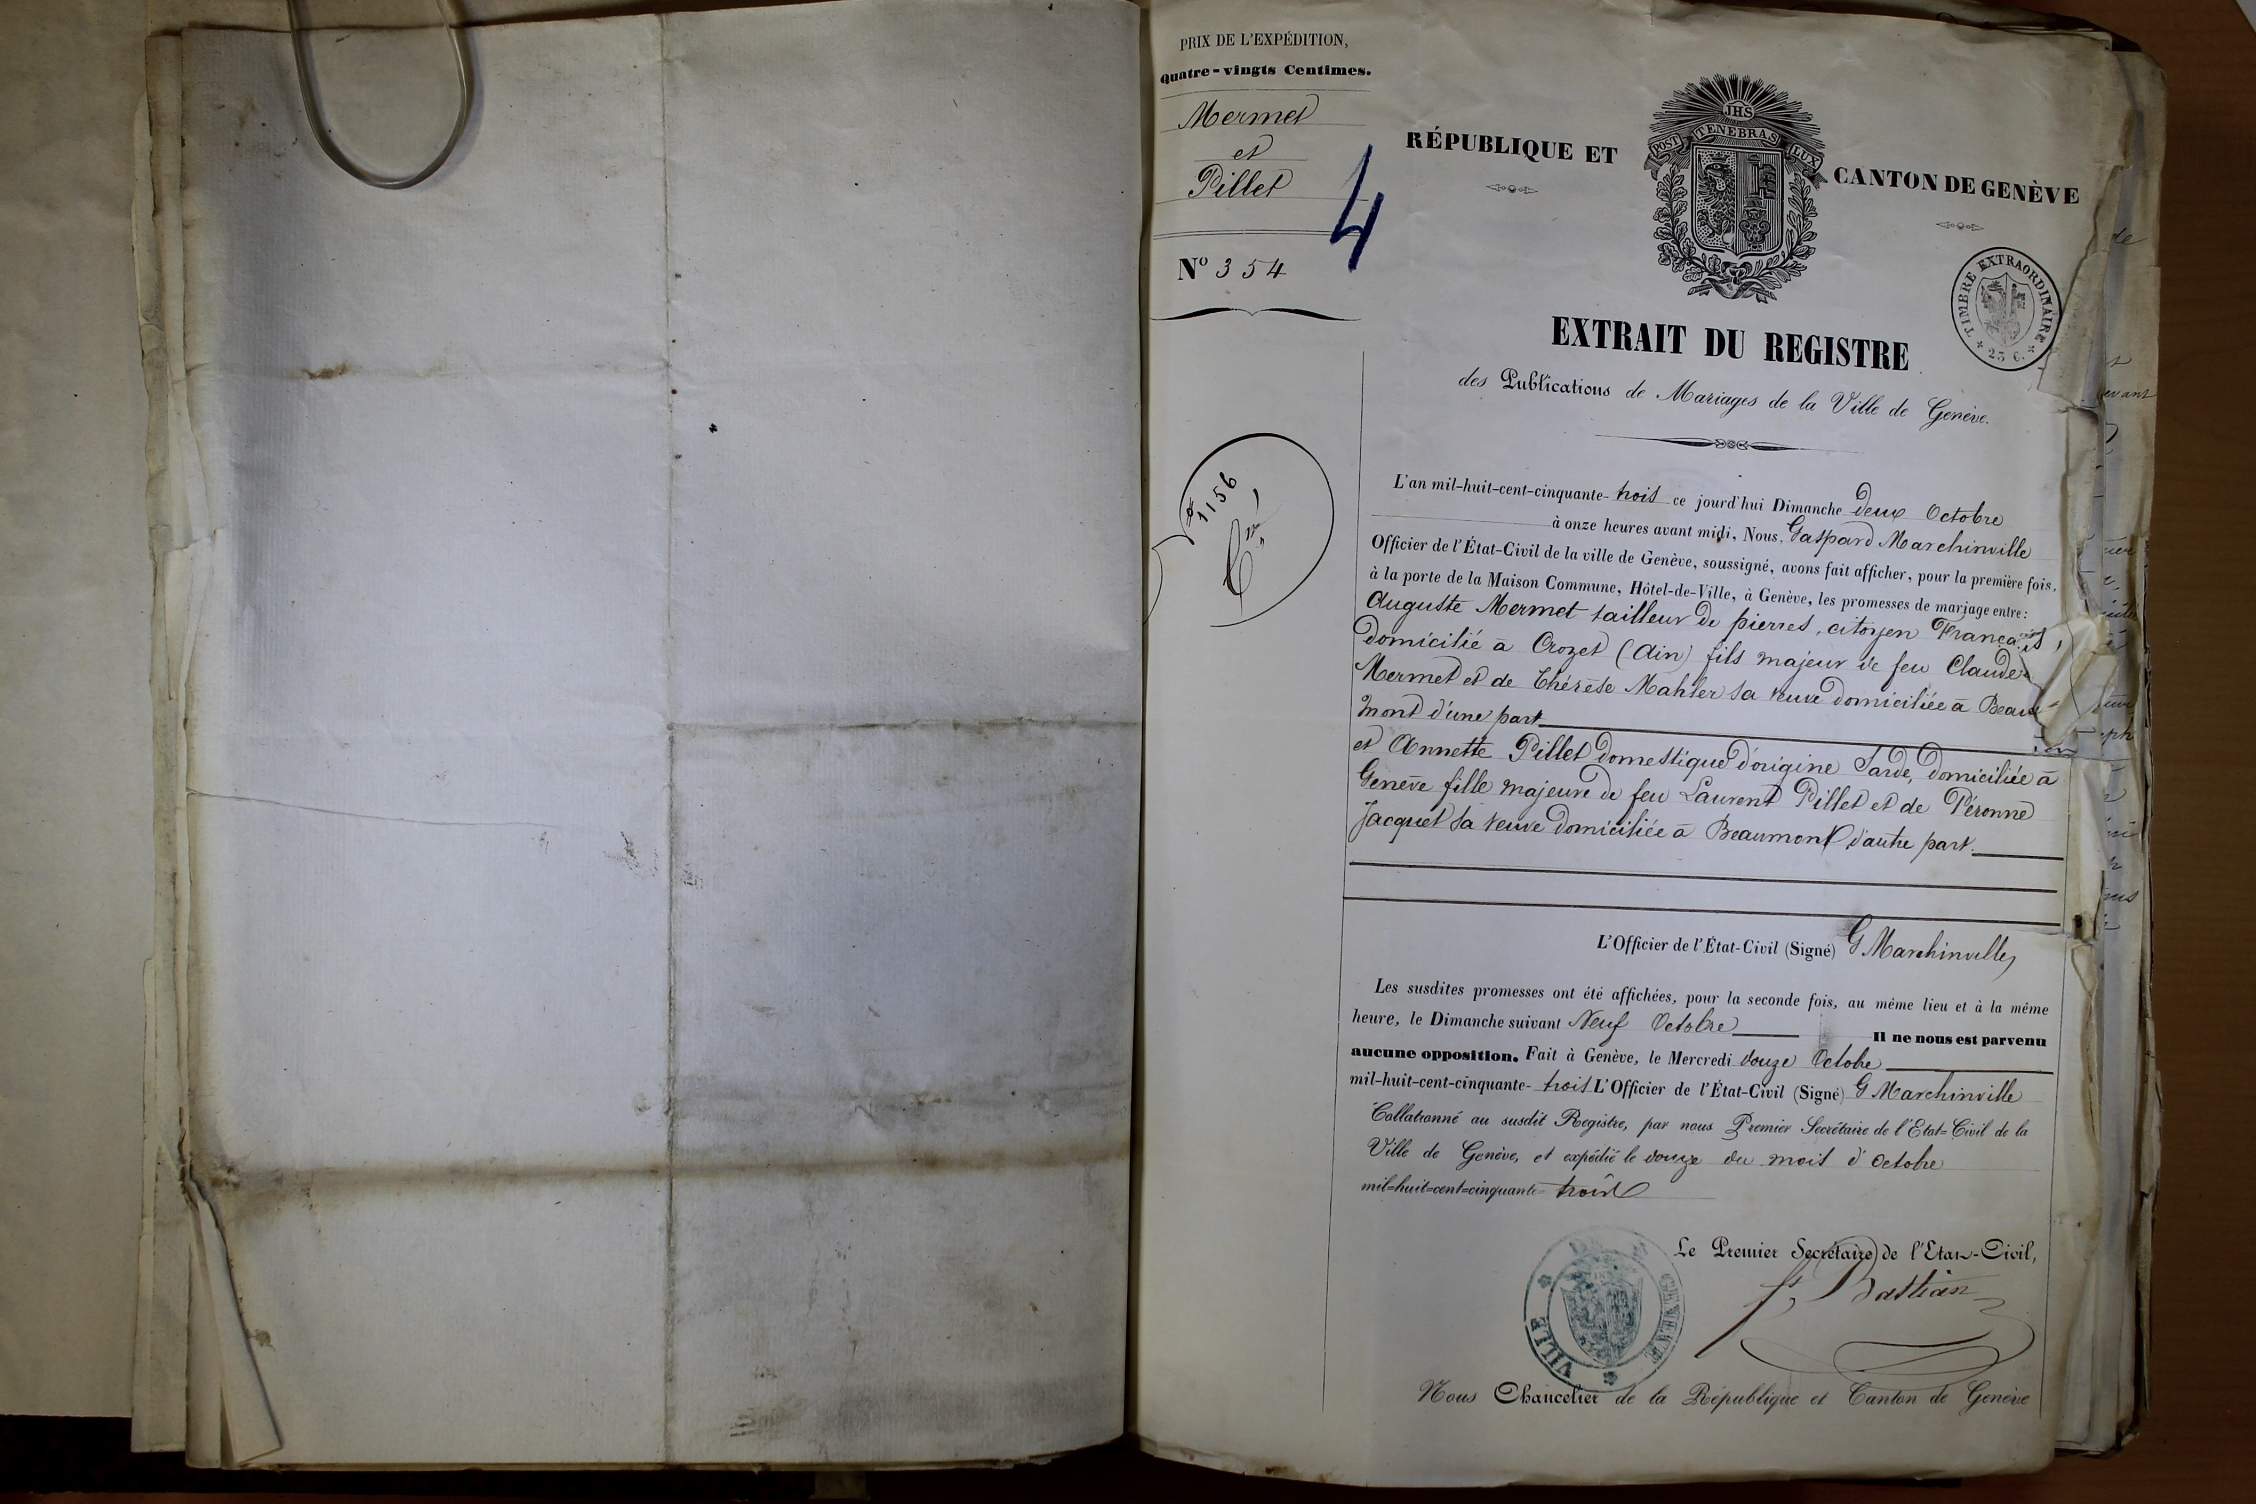 PRIX DE L'EXPÉDITION,
Quatre-vingts Centimes.
Mermet
et
Pillet
4
Nº 354
Nº 1156
RÉPUBLIQUE ET
CANTON DE GENÈVE
JHS
POST TENEBRAS LUX
TIMBRE EXTRAORDINAIRE
* 25 C. *
EXTRAIT DU REGISTRE
des Publications de Mariages de la Ville de Genève.
L'an mil-huit-cent-cinquante-trois ce jourd'hui Dimanche deux Octobre
à onze heures avant midi, Nous, Gaspard Marchinville
Officier de l'État-Civil de la ville de Genève, soussigné, avons fait afficher, pour la première fois,
à la porte de la Maison Commune, Hôtel-de-Ville, à Genève, les promesses de mariage entre:
Auguste Mermet tailleur de pierres, citoyen Français,
domicilié à Crozet (Ain) fils majeur de feu Claude
Mermet et de Thérèse Mahler sa veuve domiciliée à Beau-
mont d'une part
et Annette Pillet domestique d'origine Sarde, domiciliée à
Genève fille majeure de feu Laurent Pillet et de Péronne
Jacquet sa veuve domiciliée à Beaumont d'autre part.
L'Officier de l'État-Civil (Signé) G Marchinville
Les susdites promesses ont été affichées, pour la seconde fois, au même lieu et à la même
heure, le Dimanche suivant Neuf Octobre Il ne nous est parvenu
aucune opposition. Fait à Genève, le Mercredi douze Octobre
mil-huit-cent-cinquante-trois L'Officier de l'État-Civil (Signé) G Marchinville
Collationné au susdit Registre, par nous Premier Secrétaire de l'Etat=Civil de la
Ville de Genève, et expédié le douze du mois d'Octobre
mil=huit=cent=cinquante=trois
Le Premier Secrétaire de l'Etat-Civil,
Bastian
VILLE DE GENEVE
Nous Chancelier de la République et Canton de Genève